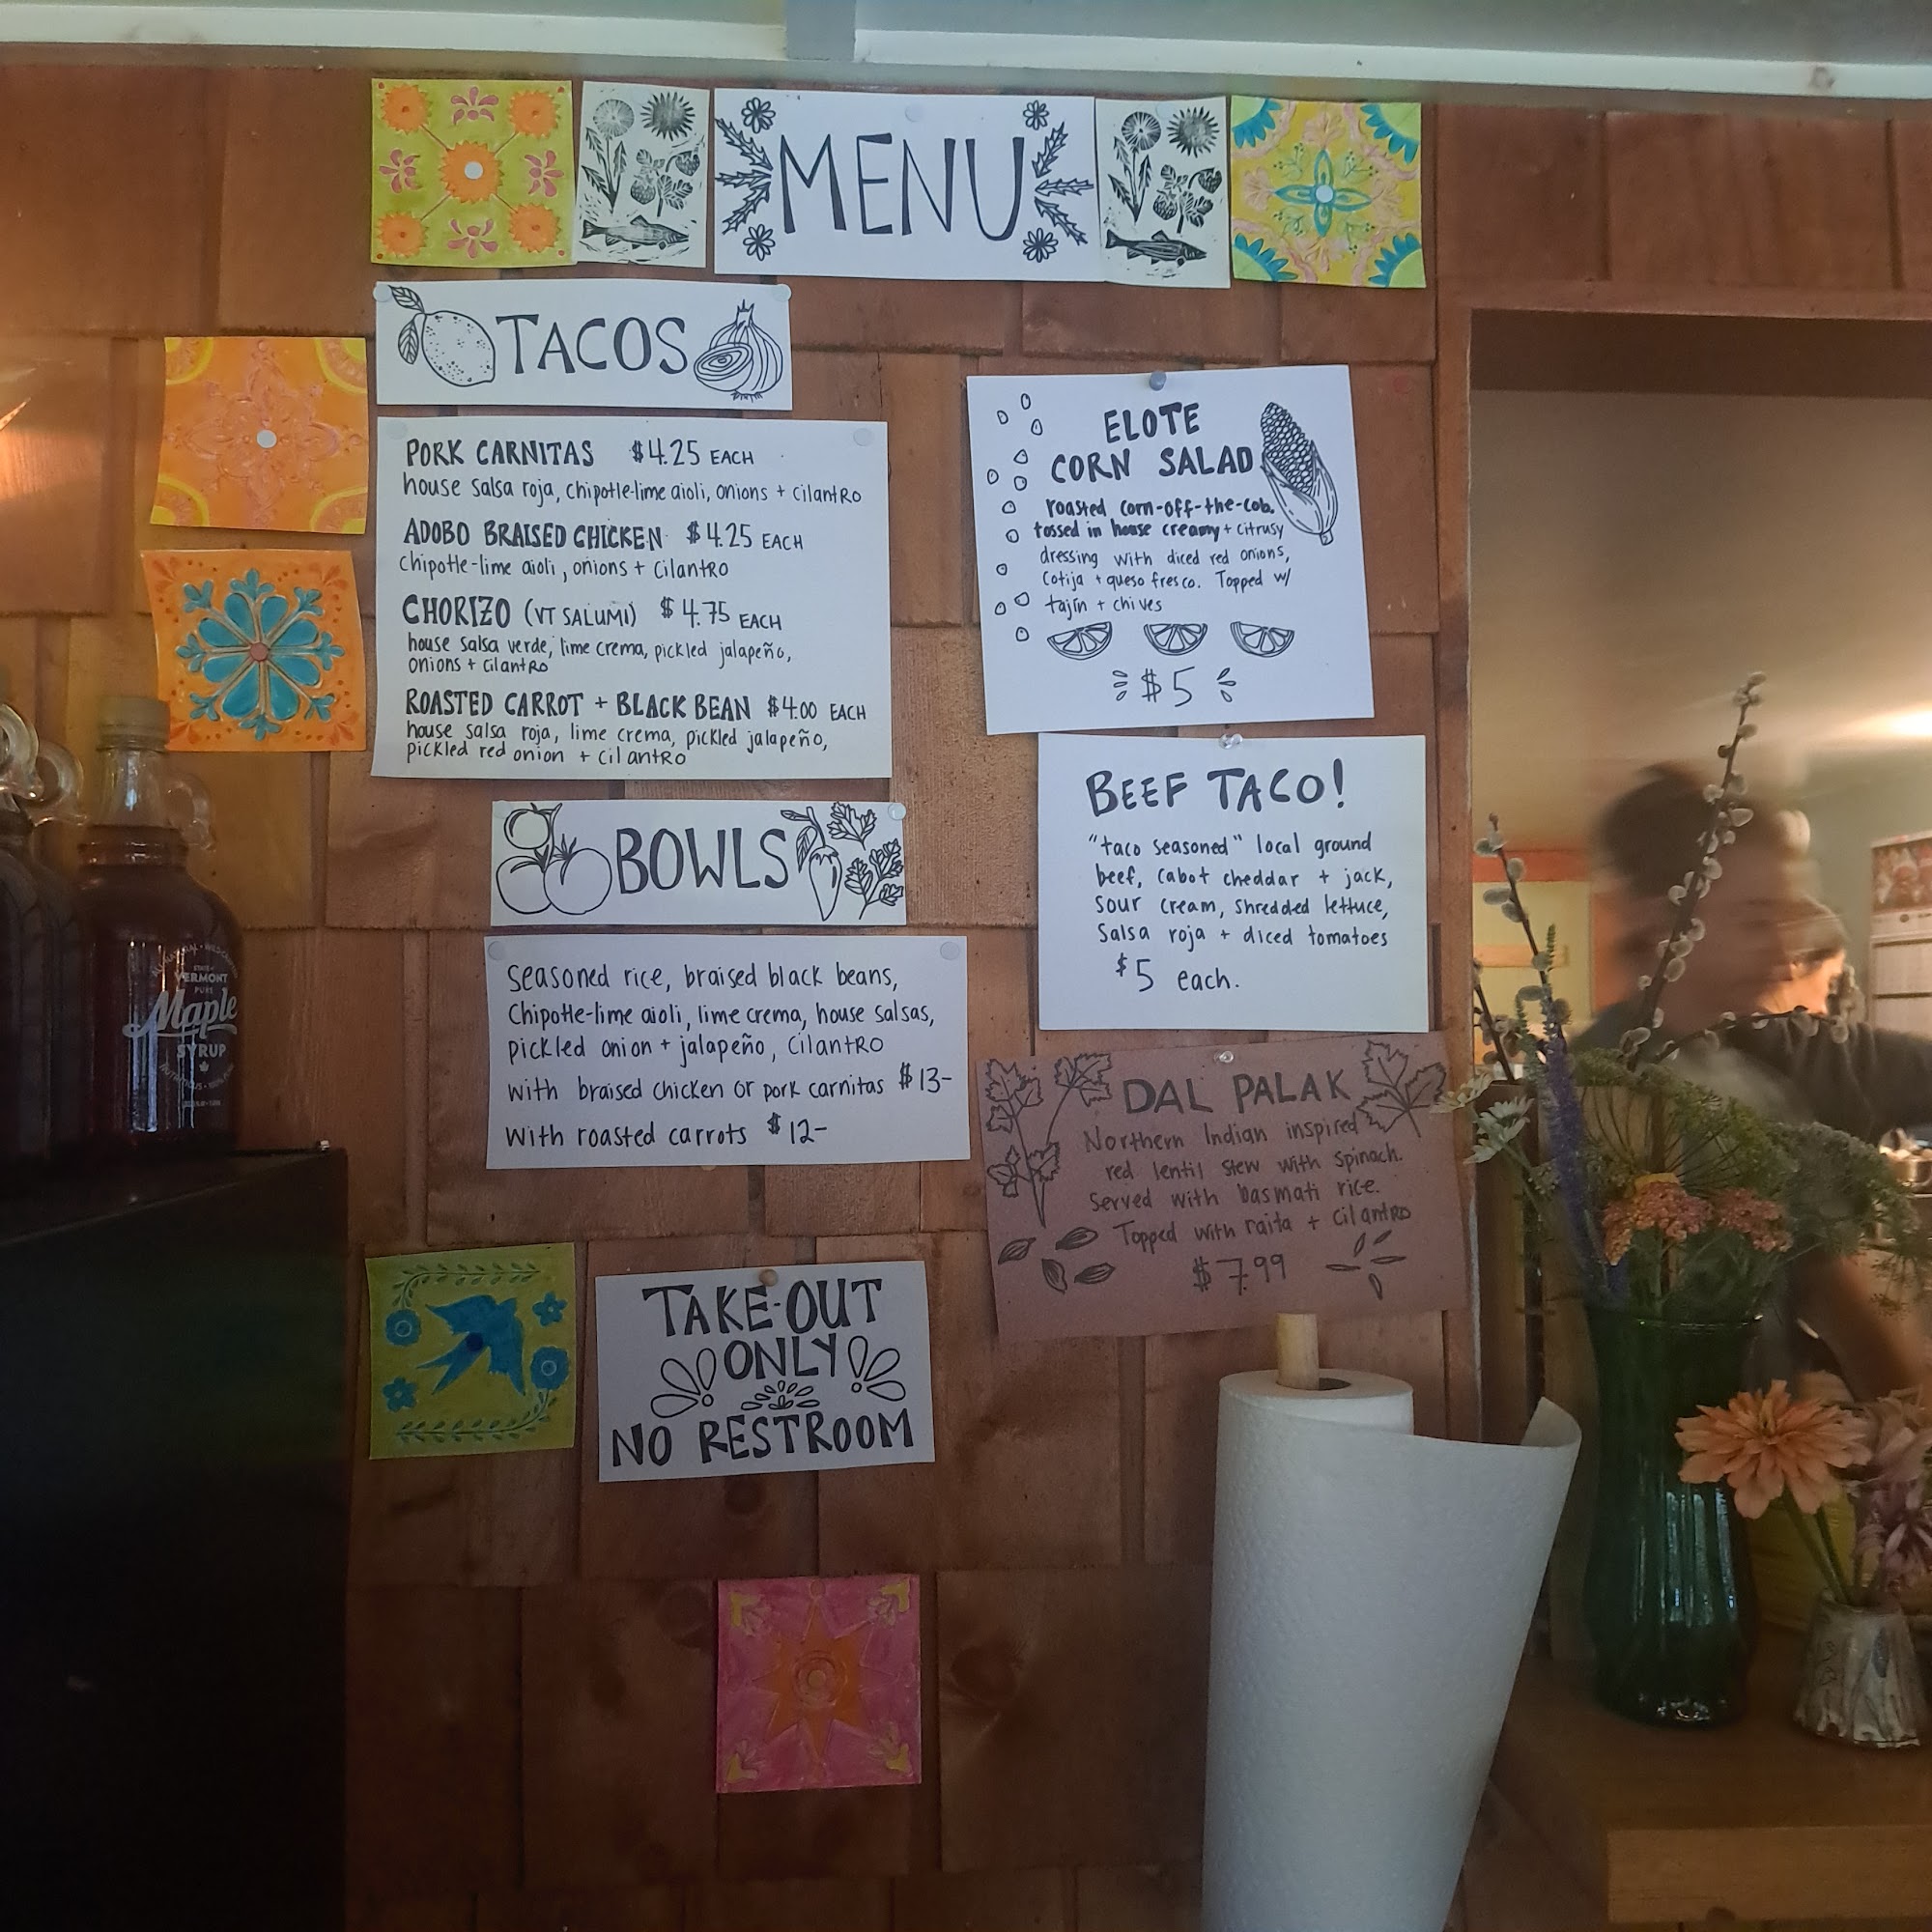 MENU
TACOS
PORK CARNITAS $4.25 EACH
house salsa roja, chipotle-lime aioli, onions + cilantro
ADOBO BRAISED CHICKEN $4.25 EACH
chipotle-lime aioli, onions + cilantro
CHORIZO (VT SALUMI) $4.75 EACH
house salsa verde, lime crema, pickled jalapeño,
onions + cilantro
ROASTED CARROT + BLACK BEAN $4.00 EACH
house salsa roja, lime crema, pickled jalapeño,
pickled red onion + cilantro
BOWLS
seasoned rice, braised black beans,
Chipotle-lime aioli, lime crema, house salsas,
pickled onion + jalapeño, cilantro
with braised chicken or pork carnitas $13-
with roasted carrots $12-
TAKE-OUT
ONLY
NO RESTROOM
ELOTE
CORN SALAD
roasted corn-off-the-cob.
tossed in house creamy + citrusy
dressing with diced red onions,
cotija + queso fresco. Topped w/
tajín + chives
$5
BEEF TACO!
"taco seasoned" local ground
beef, cabot cheddar + jack,
sour cream, shredded lettuce,
salsa roja + diced tomatoes
$5 each.
DAL PALAK
Northern Indian inspired
red lentil stew with spinach.
Served with basmati rice.
Topped with raita + cilantro
$7.99
STATE OF
VERMONT
PURE
Maple
SYRUP